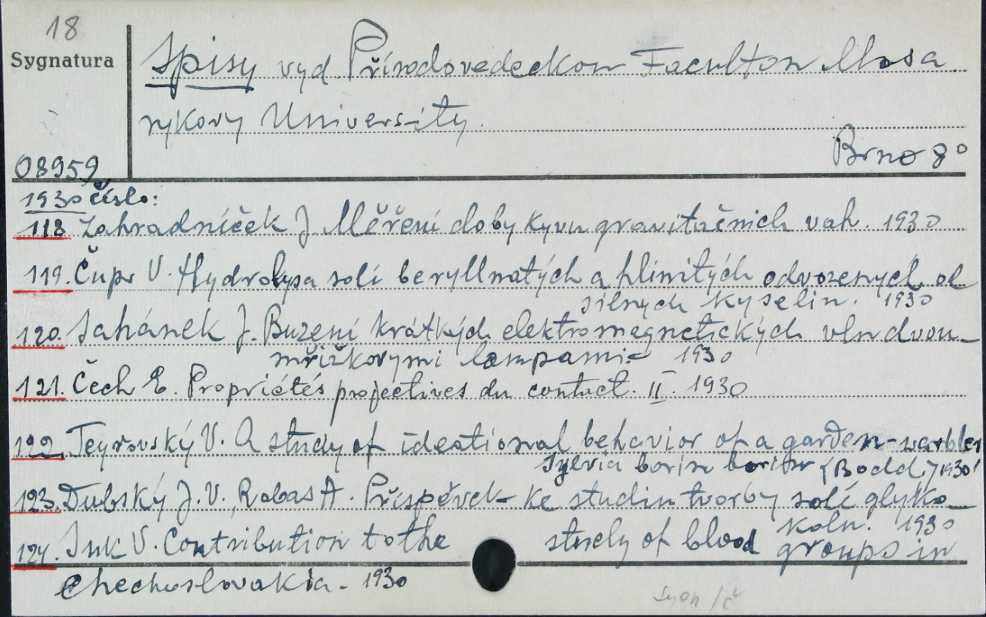 18
Sygnatura
Spisy vyd Přírodovedeckou Facultou Masa
rykovy University.
08959
Brno 8°
1930 číslo:
118 Zahradníček J Měření doby kyvu gravitačních vah. 1930
119. Čupr V. Hydrolysa solí beryllnatých a hlinitých odvozenych od
silnych kyselin. 1930
120. Sahánek J. Buzení krátkých elektromegnetických vln dvou-
mřížkovymi lampami - 1930
121. Čech E. Propriétés projectives du contact. II. 1930
122. Teyrovský V. A study of ideational behavior of a garden-warbler
Sylvia borin borin (Bodd) 1930
123. Dubský J. V., Rabas A. Příspěvek ke studiu tvorby solí glyko-
kolu. 1930
124. Suk V. Contribution to the study of blood groups in
Chechoslovakia - 1930